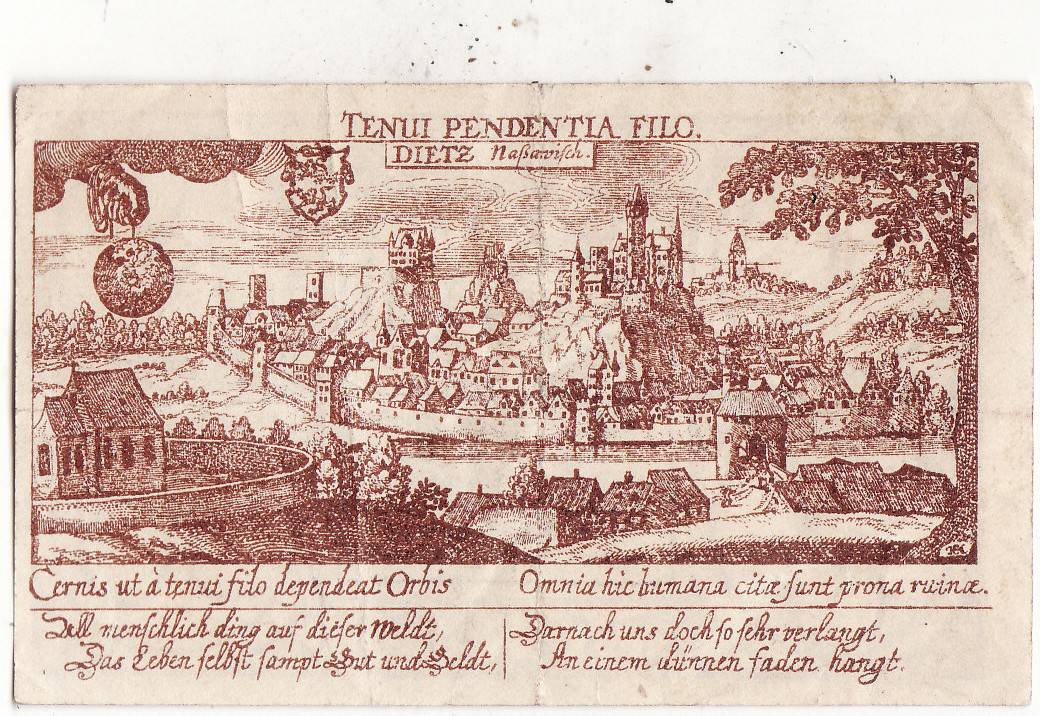 TENUI PENDENTIA FILO.
DIETZ Naßawisch.
Cernis ut à tenui filo dependeat Orbis
Omnia hic humana citæ sunt prona ruinæ.
All menschlich ding auf dieser Weldt,
Das Leben selbst sampt Gut und Geldt,
Darnach uns doch so sehr verlangt,
An einem dünnen faden hangt.